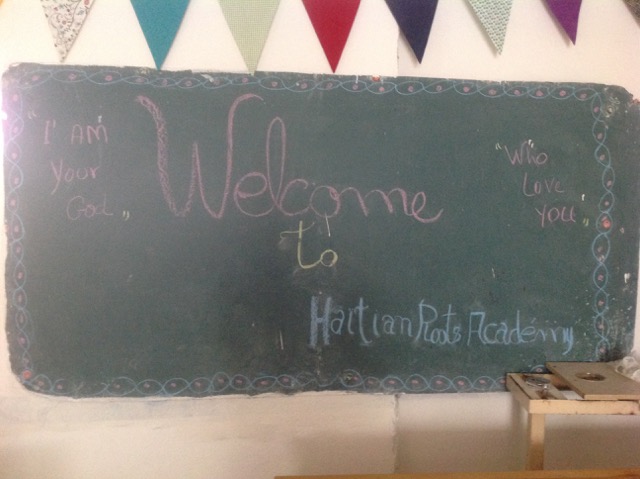 "I AM
Your
God"
Welcome
to
"Who
Love
You"
Haitian Roots Academy